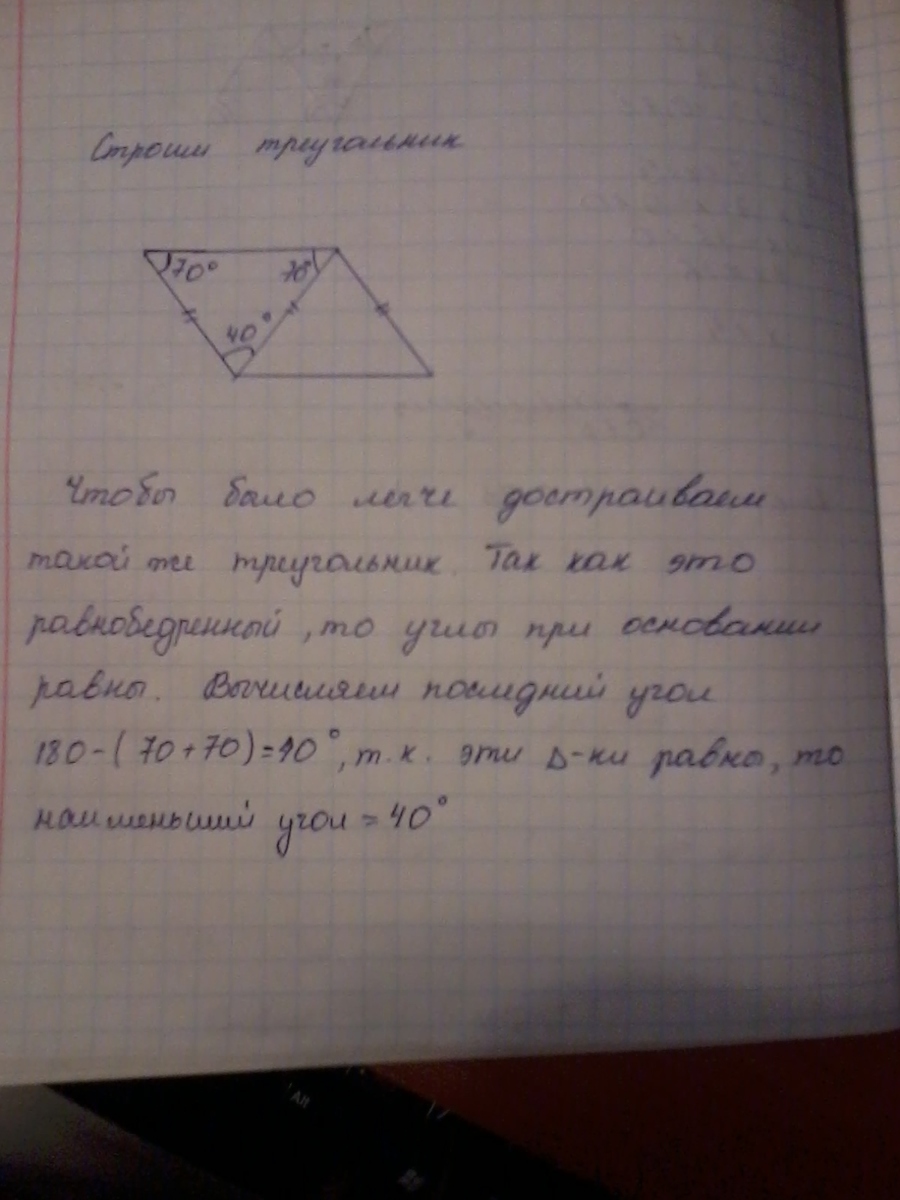 Строим треугольник
70° 70°
40°
Чтобы было легче достраиваем
такой же треугольник. Так как это
равнобедренный, то углы при основании
равны. Вычисляем последний угол
180-(70+70)=40°, т.к. эти Δ-ки равны, то
наименьший угол = 40°
Alt